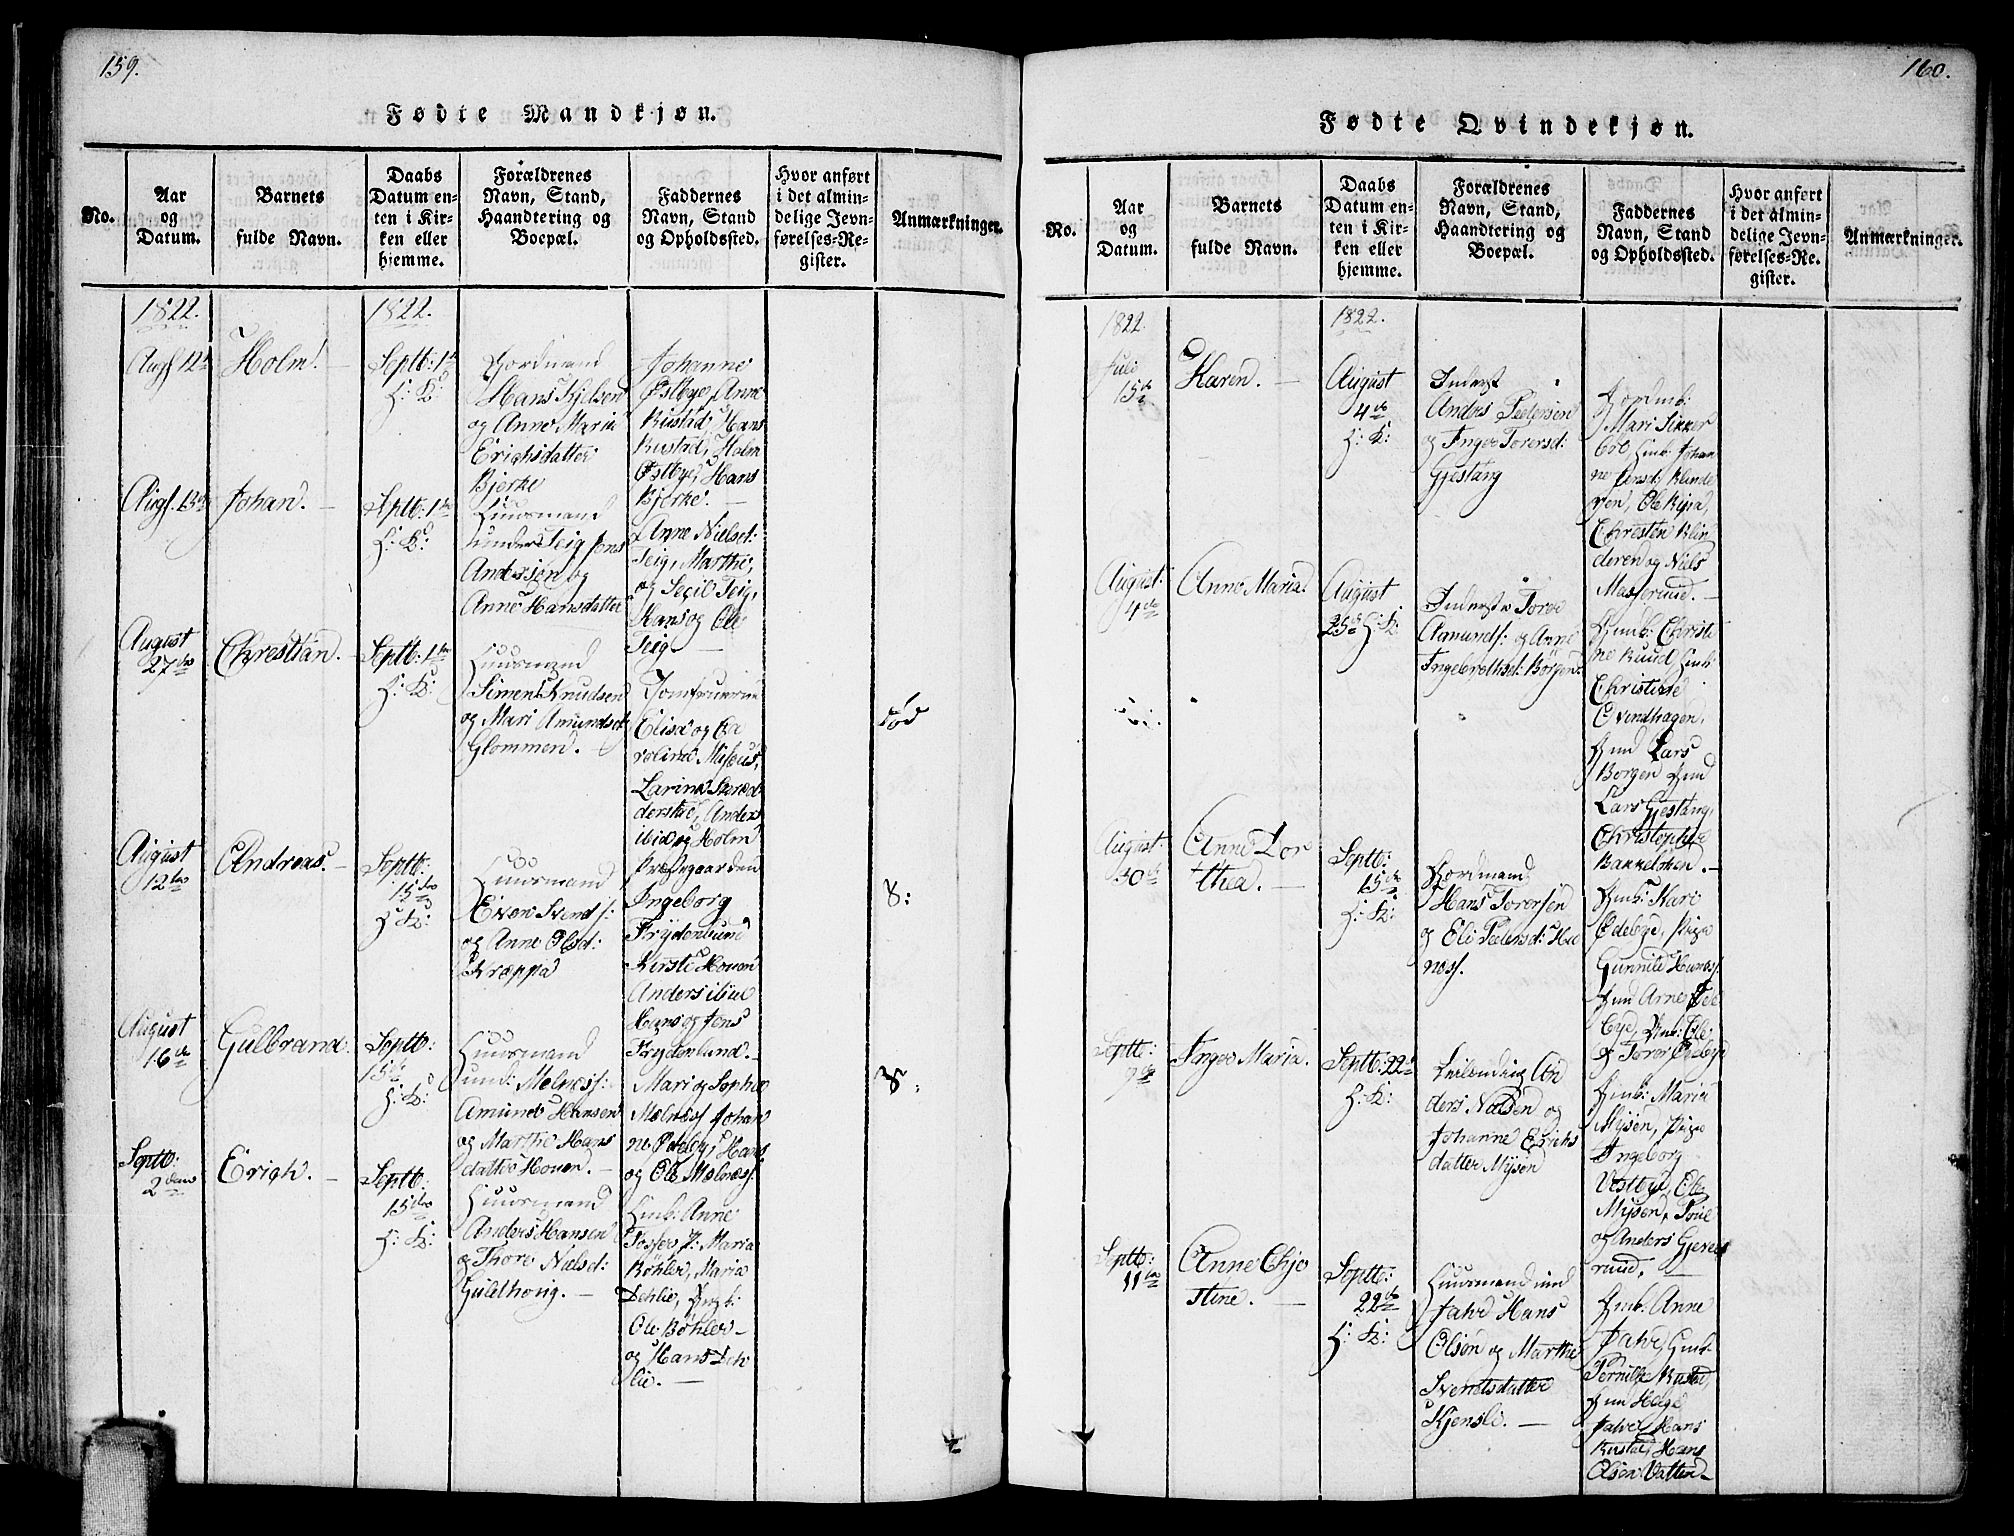 159.
Fødte Mandkjøn.
No.
Aar
og
Datum.
Barnets
fulde Navn.
Daabs
Datum en-
ten i Kir-
ken eller
hjemme.
Forældrenes
Navn, Stand,
Haandtering og
Boepæl.
Faddernes
Navn, Stand
og Opholdssted.
Hvor anført
i det almin-
delige Jevn-
førelses-Re-
gister.
Anmærkninger.
1822.
1822.
Augs 12te
Holm.
Septb: 1te
H: K:
Gordmand
Hans Kjelsen
og Anne Maria
Erichsdatter
Bjerke
Johanne
Østbye, Anne
Rustad, Hans
Rustad, Holm
Østbye, Hans
Bjerke.
Augs. 13de
Johan.
Septb: 1te
H: K:
Huusmand
under Teig Jens
Andersen og
Anne Hansdatter
Anne Nielsd:
Teig, Marthe,
og Secil Teig,
Hans og Ole
Teig
August
27de
Chrestian.
Septb: 1te
H: K:
Huusmand
Simen Knudsen
og Mari Amundsd:
Glommen.
Jomfruerne
Elisa og Ca
roline
Larine
Anders
og Holm
Præstegaarden
død
August
12te
Andreas.
Septb:
15de
H: K:
Huusmand
Even Svends:
og Anne Olsd:
Kræppa
Ingeborg
Frydenlund
Kirsti Houen
Anders
Hans og Jens
Frydenlund.
8:
August
16de
Gulbrand.
Septb:
15de
H: K:
Huusmand
und: Melness:
Amund Hansen
og Marthe Hans
datter Houen.
Mari og Sophie
Melness Johan
ne Ødeby, Hans
og Ole Melness.
Septb:
2den
Erich.
Septb:
15de
H: K:
Huusmand
Anders Hansen
og Thore Nielsd:
Gulethorig.
Anne
Maria
Bøhler, Maria
Dehlie,
Ole Bøhler
og Hans Deh
lie.
160.
Fødte Qvindekjøn.
No.
Aar
og
Datum.
Barnets
fulde Navn.
Daabs
Datum en-
ten i Kir-
ken eller
hjemme.
Forældrenes
Navn, Stand,
Haandtering og
Boepæl.
Faddernes
Navn, Stand
og Opholdssted.
Hvor anført
i det almin-
delige Jevn-
førelses-Re-
gister.
Anmærkninger.
1822
1822.
Juli
15de
Karen.
August
4de
H: K:
Inderst
Andrs Pedersen
og Inger Torersd:
Gjestang
Mari Sikker
bøl, Johan
ne
Ole Ripa,
Chresten Blin
deren og Niels
Masserud.
August:
4de
Anne Maria.
August
25de H: K:
Inderste Tore
Aamunds: og Anne
Ingebrethsd: Børgen
Christi
ne Ruud
Christine
Ovindhagen,
Lars
Borgen
Lars Gjestang,
Christopher
Bakkeløkken.
August:
30de
Anne Dor
thea.
Septb:
15de
H: K:
Gordmand
Hans Torersen
og Eli Pedersd: Hu
ness.
Kari
Ødebye, Pige
Gunnild Huness.
Arne Øde
bye, Ole
og Torer Ødeby
Septb:
9de
Inger Maria.
Septb: 22de
H: K:
An
ders Nielsen og
Johanne Erichs
datter Mysen
Maria
Mysen, Pige
Ingeborg
Vestbye, Ole
Mysen, Poul
og Anders Gjeres
rud.
Septb:
11te
Anne Chri
stine.
Septb:
22de
H: K:
Huusmand und
Jahr Hans
Olsen og Marthe
Svendsdatter
Kjensli.
Anne
Jahr,
Pernille Rustad,
Helge
Jahr, Hans
Rustad, Hans
Olsen Vatten